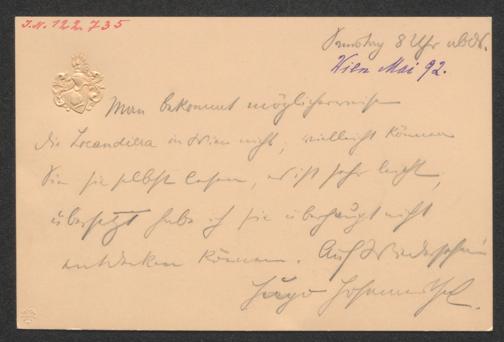 I.N. 122.735
Samstag 8 Uhr abds.
Wien Mai 92.
Man bekommt möglicherweise
die Locandiera in Wien nicht, vielleicht können
Sie sie selbst lesen, es ist sehr leicht,
übersetzt habe ich sie überhaupt nicht
entdecken können. Auf Wiedersehn
Hugo Hofmannsthal.